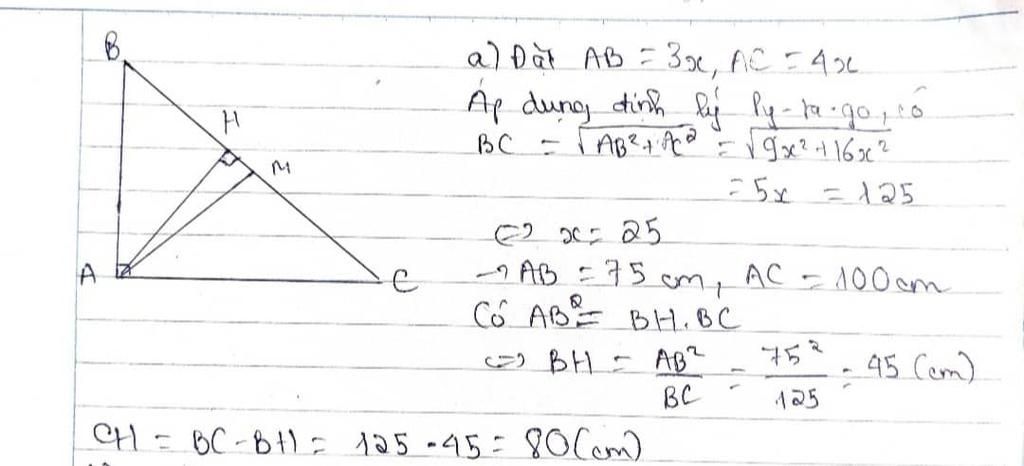 B
H
M
A
C
a) Đặt AB = 3x, AC = 4x
Áp dụng định lý Py-ta-go, có
BC = √(AB² + AC²) = √(9x² + 16x²)
= 5x = 125
⇔ x = 25
→ AB = 75 cm, AC = 100 cm
Có AB² = BH.BC
⇔ BH = AB²/BC = 75²/125 = 45 (cm)
CH = BC - BH = 125 - 45 = 80 (cm)